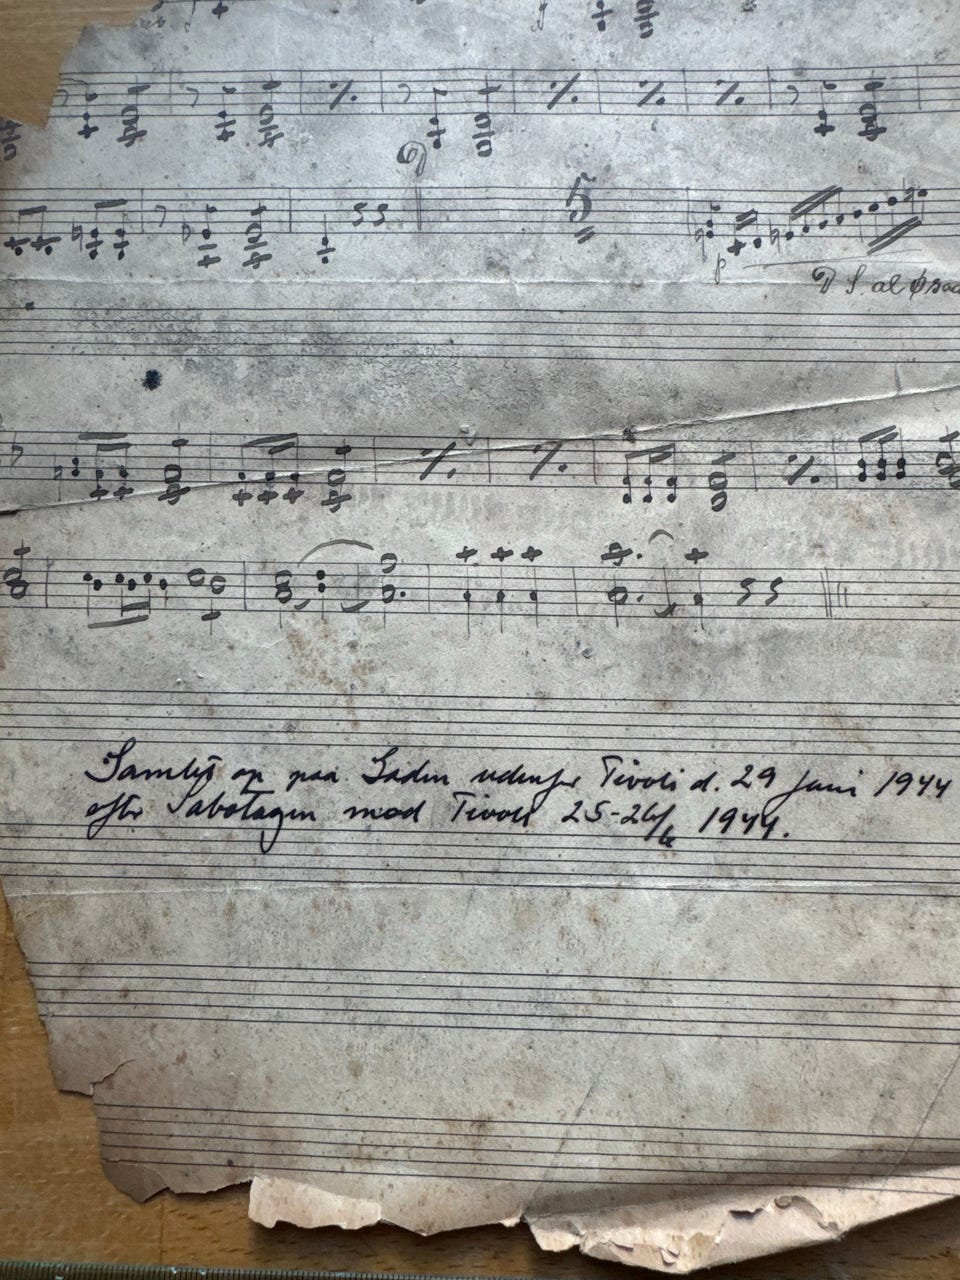 5
D S. al
Samlet op paa Gaden udenfor Tivoli d. 29 Juni 1944
efter Sabotagen mod Tivoli 25-26/6 1944.